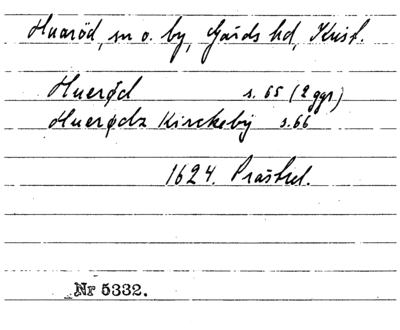 Huaröd, sn o. by, Gärds hd, Krist.
Huerød s. 65 (2 ggr)
Huerødz Kirckebÿ s. 66
1624. Prästrel.
Nr 5332.